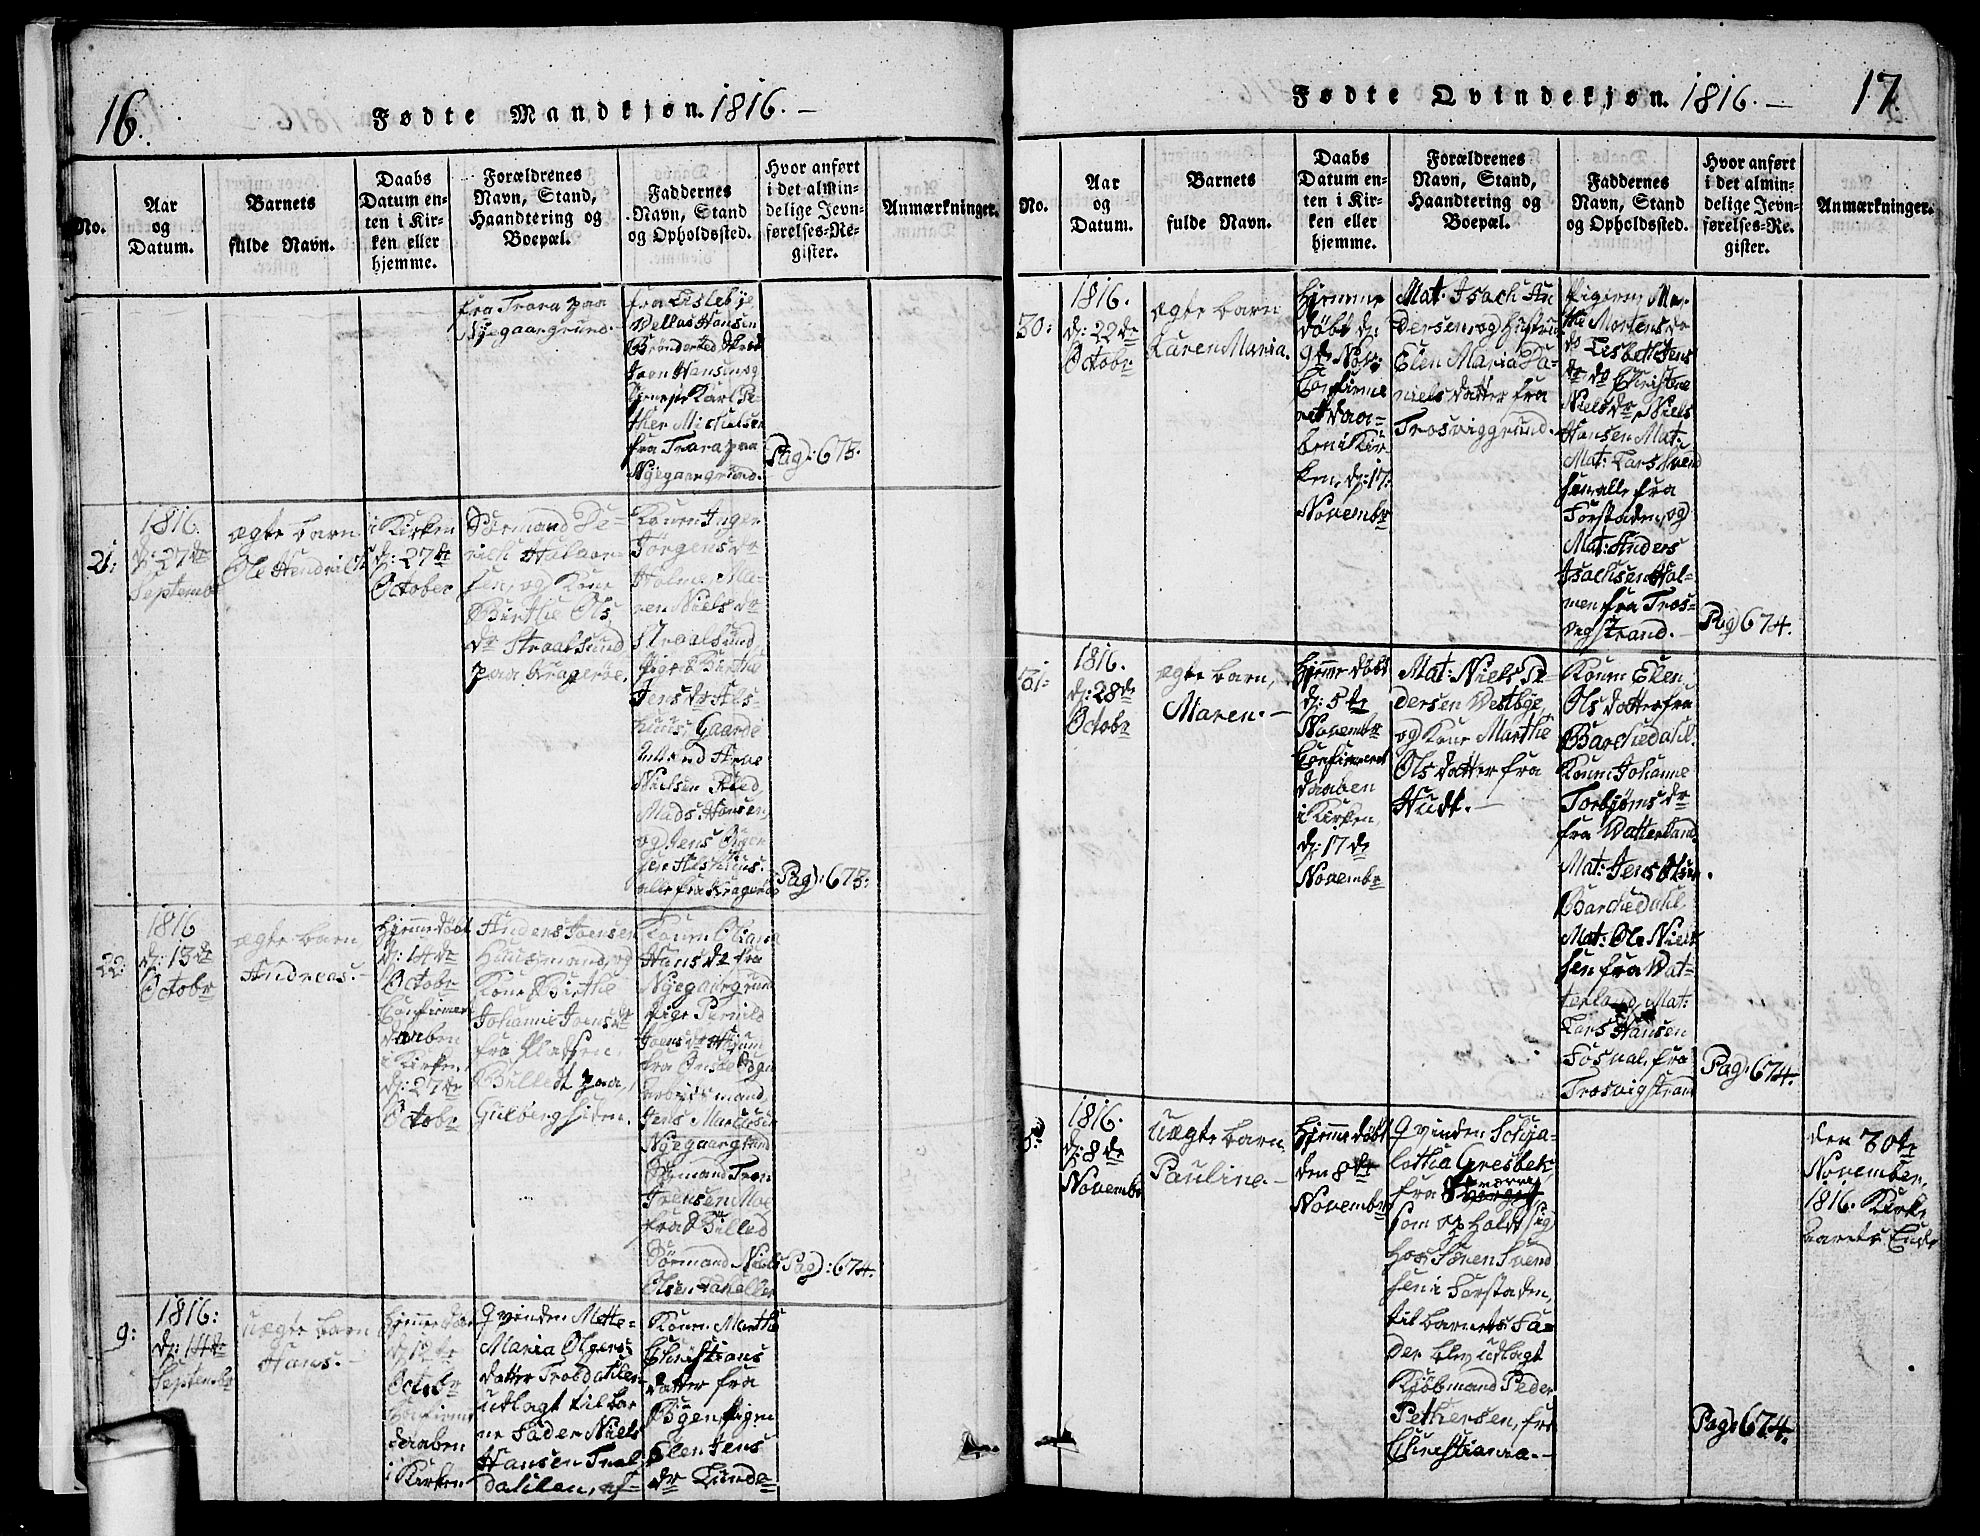 16.
Fødte Mandkjøn. 1816. —
No.
Aar
og
Datum.
Barnets
fulde Navn.
Daabs
Datum en-
ten i Kir-
ken eller
hjemme.
Forældrenes
Navn, Stand,
Haandtering og
Boepæl.
Faddernes
Navn, Stand
og Opholdssted.
Hvor anført
i det almin-
delige Jevn-
førelses-Re-
gister.
Anmærkninger.
fra Trara paa
Nÿegaargrund.
fra Lislebÿe
Hansen
Joen Hansen og
Karl Pe-
ther Michelsen
fra Trara paa
Nÿegaargrund.
Pag: 673.
21:
1816.
d: 27de
Septembr
ægte barn
Ole Hendrich
i Kirken
d: 27de
October
Sørmand De-
rich Halvor-
sen, og Kone
Birthe Ols
dr Straalsund
paa Kragerøe.
Konen Inger
Jørgens dr
Holm, Ma-
ren Niels dr
Straalsund,
Pige Birthe
Jens dr Aas-
huus, Gaarde
mand
Nielsen
Mads Hansen,
og Jens
sen
alle fra Kragerøe
Pag: 673:
22:
1816
d: 13de
Octobr
ægte barn
Andreas. —
Hjemme døbt
d: 14de
Octobr
Confirmeret
daaben
i Kirken,
d: 27de
Octobr
Anders Joensen
Huusmand, og
Kone Birthe
Johanne Joens dr
fra Pladsen,
Billedt paa
Gulbergsiden.
Konen Oliana
Hans dr fra
Nÿegaargrund
Pige Pernild
Joens dr
fra Onsøe Sogn
Arbeidsmand
Jens
Nÿegaargrund
Sørmand
Jensen Moe
fra Billed
Sørmand Niels
Olsen
Pag: 674.
9:
1816:
d: 14de
Septembr
Uægte barn
Hans. —
Hjemme døbt
Octobr
Confirmeret
daaben
i Kirken
Qvinden Mette
Maria Olgers
datter Trosdahlen
utlagt til bar
ne Fader Niels
Hansen
dahlen, af
Konen Marthe
Christians
datter fra
Bÿen, Pigen
Elen Jens
dr Lunde
17
Fødte Qvindekjøn. 1816. —
No.
Aar
og
Datum.
Barnets
fulde Navn.
Daabs
Datum en-
ten i Kir-
ken eller
hjemme.
Forældrenes
Navn, Stand,
Haandtering og
Boepæl.
Faddernes
Navn, Stand
og Opholdssted.
Hvor anført
i det almin-
delige Jevn-
førelses-Re-
gister.
Anmærkninger.
30:
1816.
d: 22de
Octobr
ægte barn
Karen Maria.
Hjemme
døbt d:
9de Nov:
Confirme
ret daa-
ben i Kir-
ken, d: 17:
Novembr
Mat. Isach An
dersen, og Hustru
Elen Maria Da-
niels datter fra
Trosviggrund.
Pigerne Mar-
the Mortens dr
do Lisbeth Jens
dr do Christine
Niels dr Niels
Hansen Mat:
Mat: Lars Svend
sen alle fra
Forstaden, og
Mat: Anders
Isachsen Hol-
men fra Tros-
vigstrand. —
Pag 674.
31:
1816.
d: 28de
Octobr
ægte barn,
Maren. —
Hjemme døbt
d: 5te
Novembr
Confirmeret
daaben
i Kirken,
d: 17de
Novembr
Mat: Niels Pe-
dersen Westbÿe,
og Kone Marthe
Ols datter fra
Hudt. —
Konen Elen
Ols datter fra
Barchedahl.
Konen Johanne
Torbjørns dr
fra Watterland,
Mat: Jens Olsen
Barchedahl
Mat: Ole Niel
sen fra Wat-
terland, Mat:
Lars Hansen
Fosval, fra
Trosvigstrand
Pag: 674.
5:
1816.
d: 8de
Novembr
Uægte barn.
Pauline. —
Hjemme døbt
den 8de
Novembr
Qvinden Schja-
lothta Gresbek
fra
som opholdt sig
hos Søren Svend
sen i Forstaden,
til barnets Fa-
der blev udlagt
Kjøbmand Peder
Pethersen, fra
Christiania. —
Pag: 674.
den 30te
November,
1816. Kirke
aarets Ende